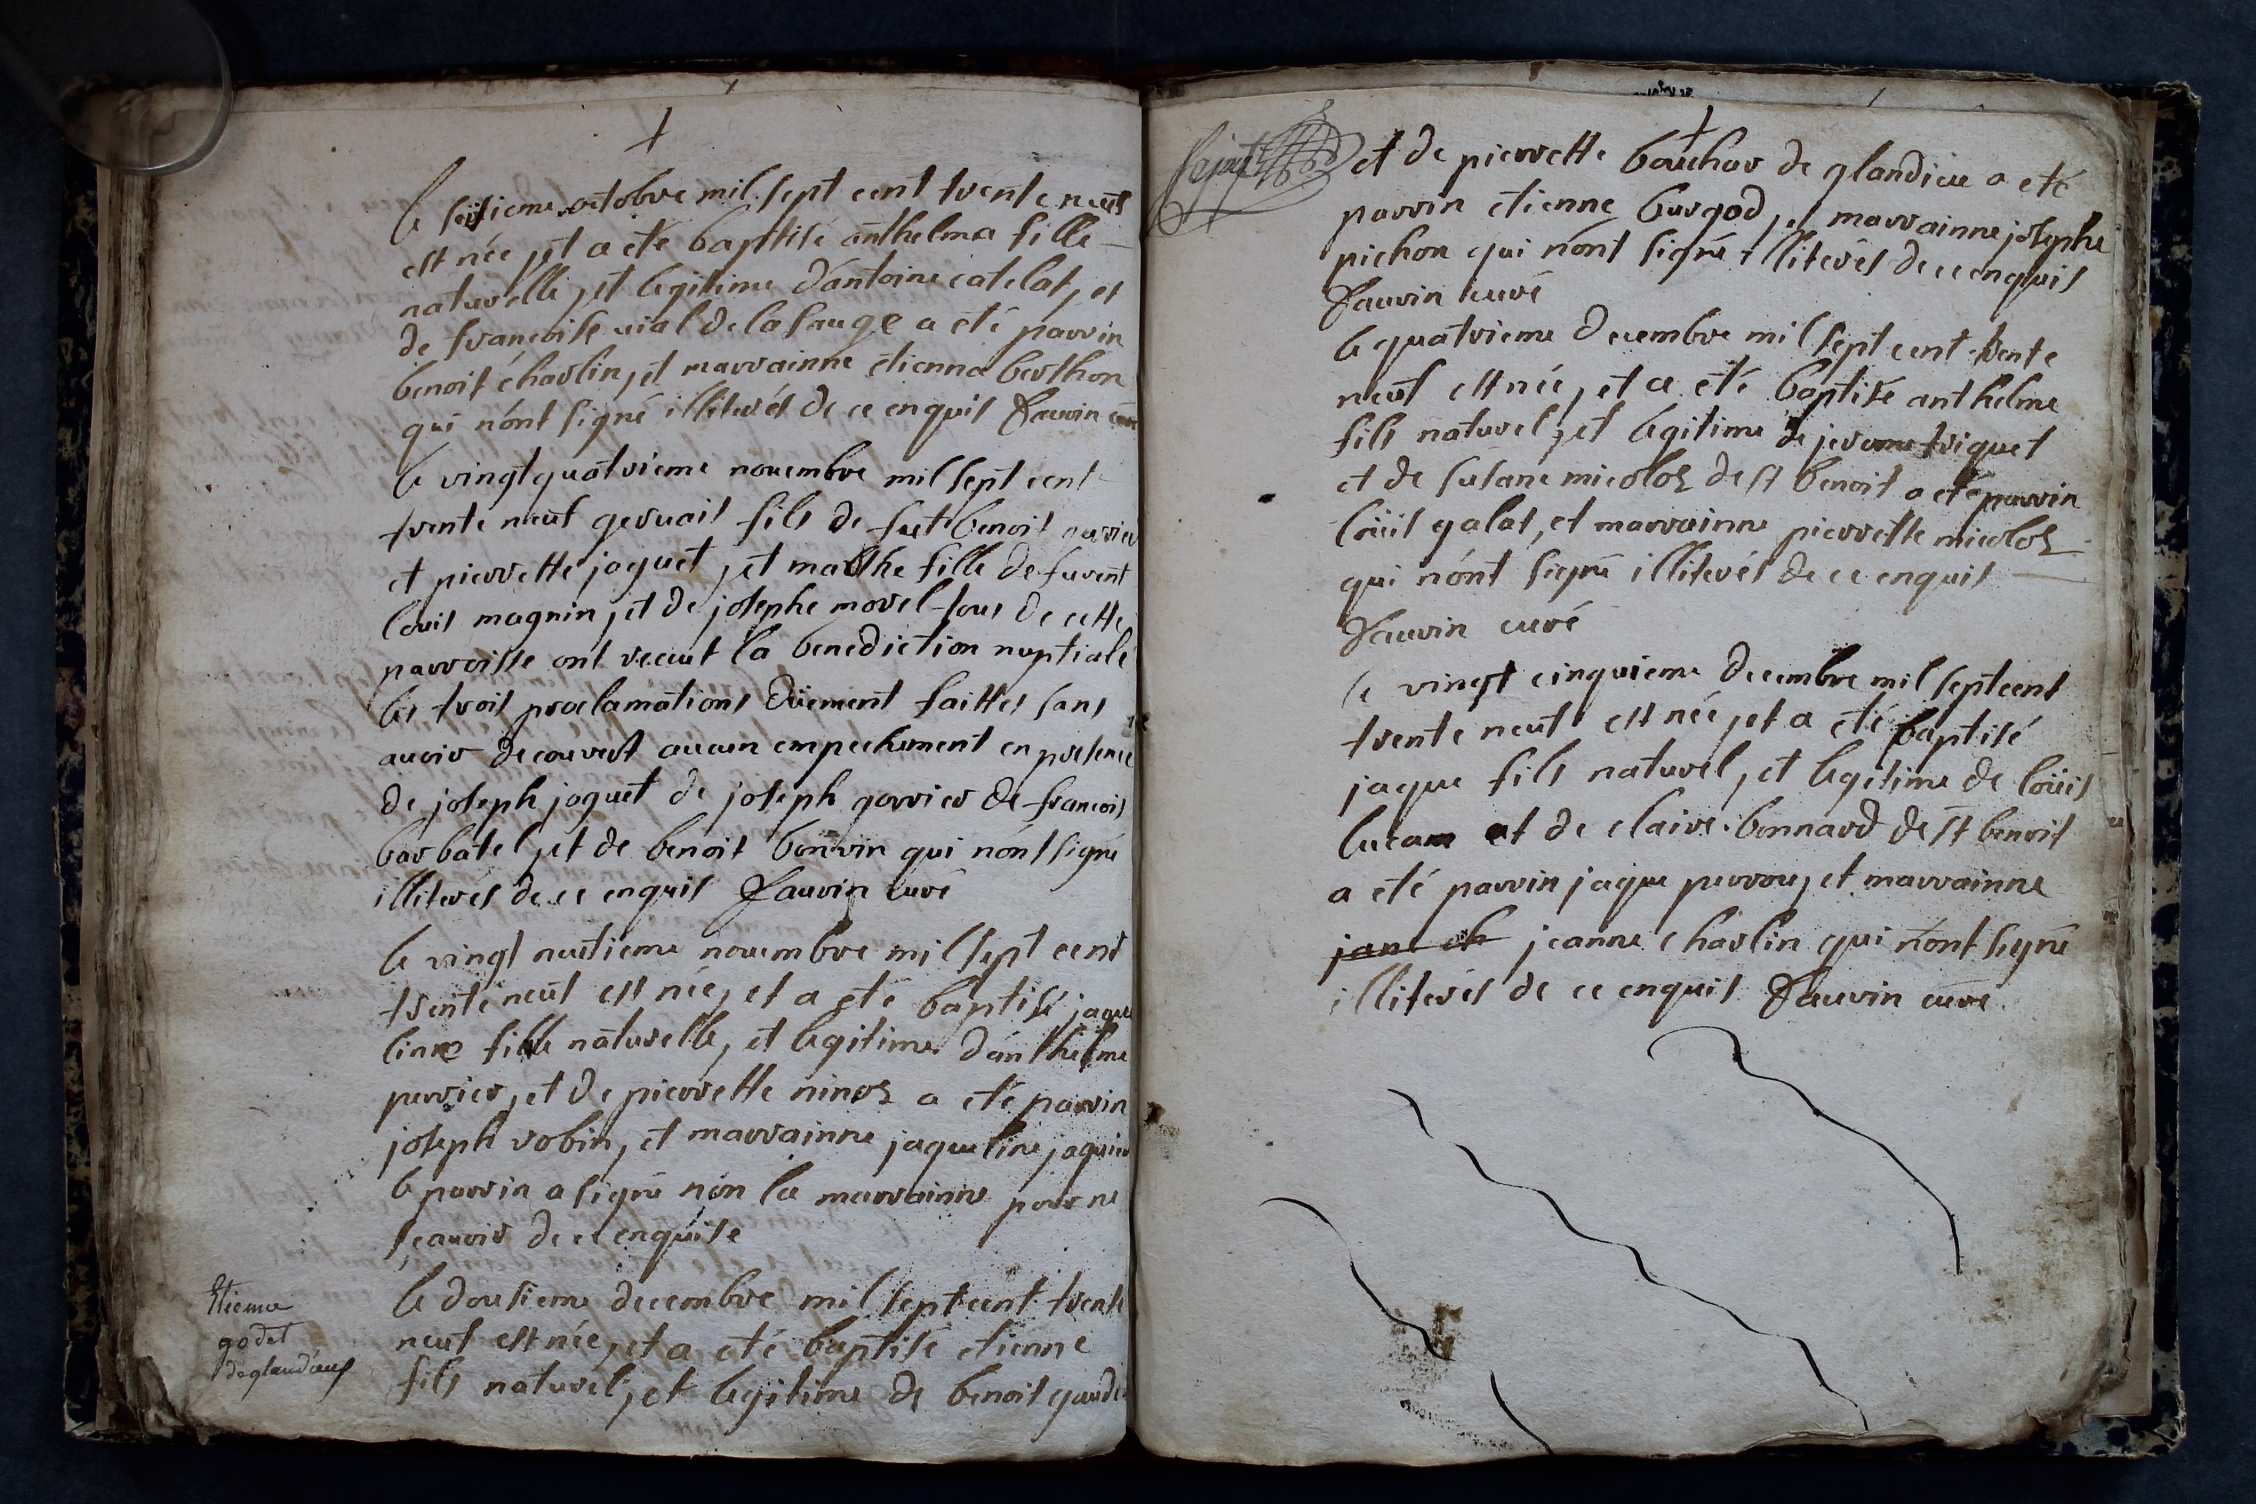 le seisieme octobre mil sept cent trente neuf
est née, et a eté baptisé anthelma fille
naturelle, et legitime d'antoine catelat, et
de françoise uial de la sauge a eté parrin
benoit charlin, et marrainne etienna berthon
qui n'ont signé illiterés de ce enquis Fauvin curé
le vingt quatrieme nouembre mil sept cent
trente neuf geruais fils de fut benoit garrier
et pierrette jaquet, et marthe fille de furent
louis magnin, et de josephe morel tous de cette
parroisse ont receut la benediction nuptiale
les trois proclamations düement faittes sans
auoir decouvert aucun empechement en presence
de joseph jaquet de joseph garrier de francois
barbatel, et de benoit bonvin qui n'ont signé
illiterés de ce enquis Fauvin curé
le vingt neutieme nouembre mil sept cent
trente neuf est née, et a eté baptisé jaque
linne fille naturelle, et legitime d'anthelme
perrier, et de pierrette ninoz a eté parrin
joseph robin, et marrainne jaqueline jaquier
le parrin a signé non la marrainne pour ne
scauoir de ce enquise
Etienne
godet
de glandieux
le dousieme decembre mil sept cent trente
neuf est née, et a eté baptisé etienne
fils naturel, et legitime de benoit gaudet
et de pierrette bauchar de glandieu a eté
parrin etienne burgod, et marrainne josephe
pichon qui n'ont signé illiterés de ce enquis
Fauvin curé
le quatrieme decembre mil sept cent trente
neuf est née, et a eté baptisé anthelme
fils naturel, et legitime de jerome triquet
et de susane micoloz de st benoit a eté parrin
loüis galat, et marrainne pierrette micoloz
qui n'ont signé illiterés de ce enquis
Fauvin curé
le vingt cinquieme decembre mil sept cent
trente neuf est née, et a eté baptisé
jaque fils naturel, et legitime de loüis
lucam et de claire bonnard de st benoit
a eté parrin jaque perrou, et marrainne
jan ch jeanne charlin qui n'ont signé
illiterés de ce enquis Fauvin curé